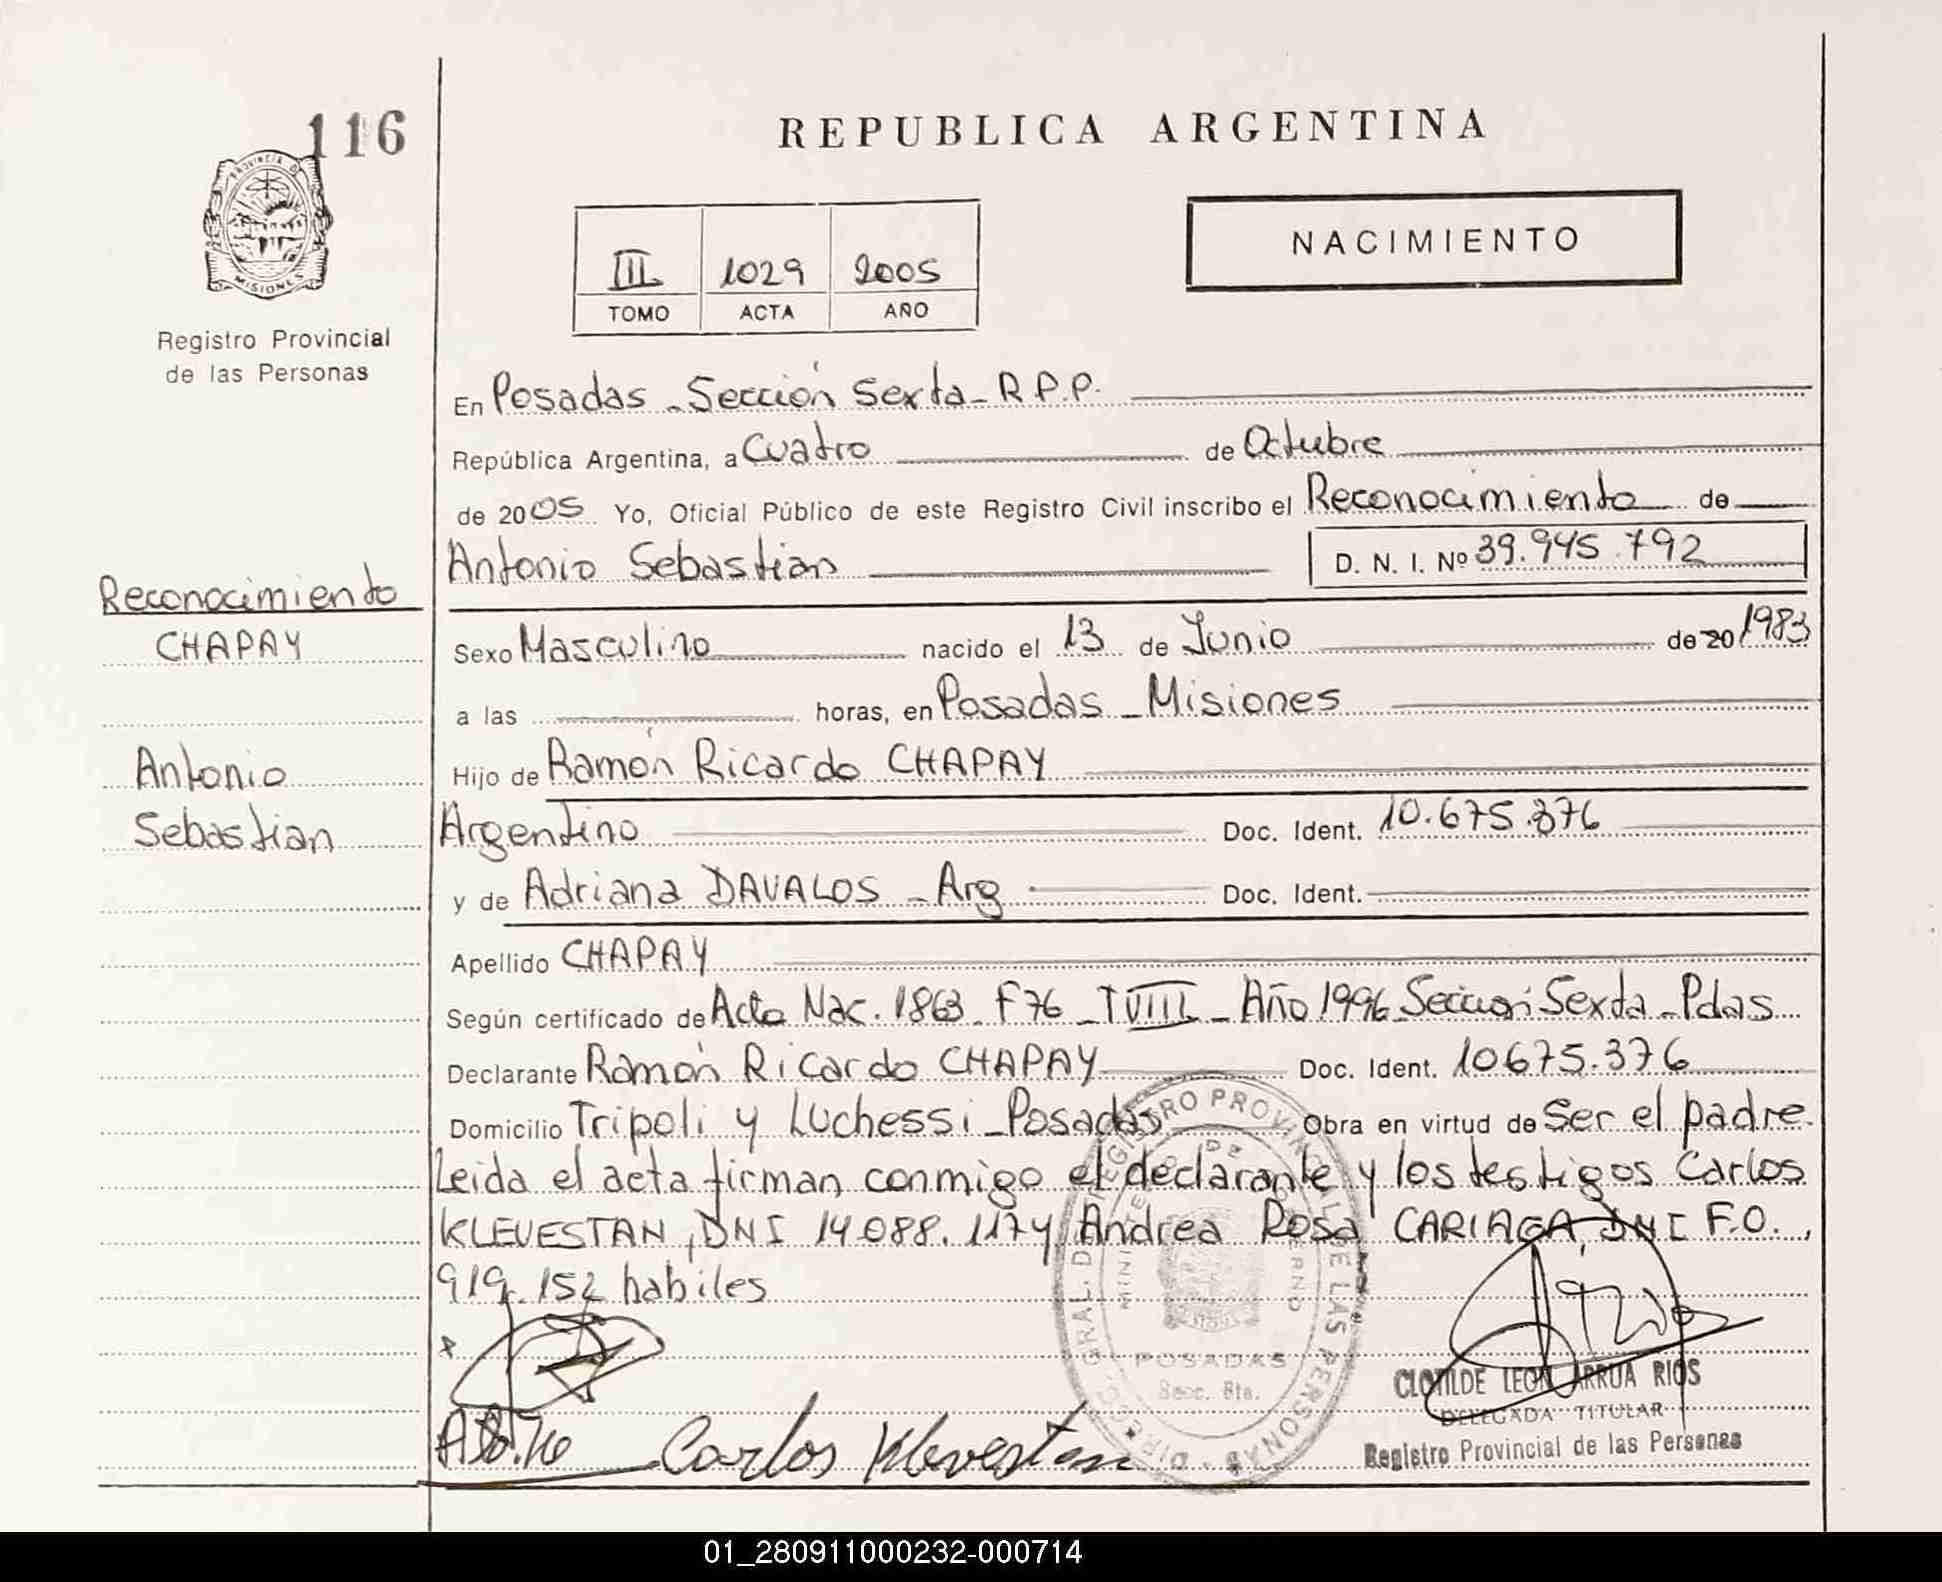 116
REPUBLICA ARGENTINA
PROVINCIA DE
MISIONES
Registro Provincial
de las Personas
III 1029 2005
TOMO ACTA AÑO
NACIMIENTO
En Posadas - Sección Sexta - R.P.P.
República Argentina, a Cuatro de Octubre
de 2005 Yo, Oficial Público de este Registro Civil inscribo el Reconocimiento de
Antonio Sebastian D. N. I. Nº 39.945.792
Reconocimiento
CHAPAY
Antonio
Sebastian
Sexo Masculino nacido el 13 de Junio de 20 1983
a las horas, en Posadas - Misiones
Hijo de Ramón Ricardo CHAPAY
Argentino Doc. Ident. 10.675.376
y de Adriana DAVALOS - Arg Doc. Ident.
Apellido CHAPAY
Según certificado de Acta Nac. 1863 F76 - TVIII - Año 1996 Sección Sexta - Pdas
Declarante Ramón Ricardo CHAPAY Doc. Ident. 10675.376
Domicilio Tripoli y Luchessi - Posadas Obra en virtud de Ser el padre.
Leida el acta firman conmigo el declarante y los testigos Carlos
KLEVESTAN, DNI 14.088.117 y Andrea Rosa CARIAGA, DNI F.O.,
919.152 habiles
DIRECC. GRAL. DE REGISTRO PROVINCIAL DE LAS PERSONAS
MINISTERIO DE GOBIERNO
POSADAS
Secc. 6ta.
Carlos Klevestan
CLOTILDE LEON ARRUA RIOS
DELEGADA TITULAR
Registro Provincial de las Personas
01_280911000232-000714